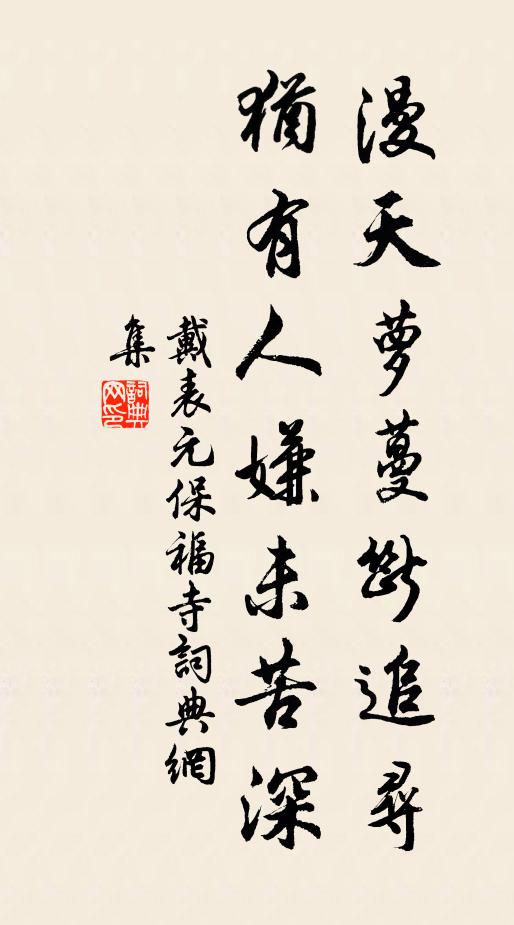 漫天萝蔓斷追尋
猶有人嫌未苦深
戴表元保福寺詞典網
集
詞典網印